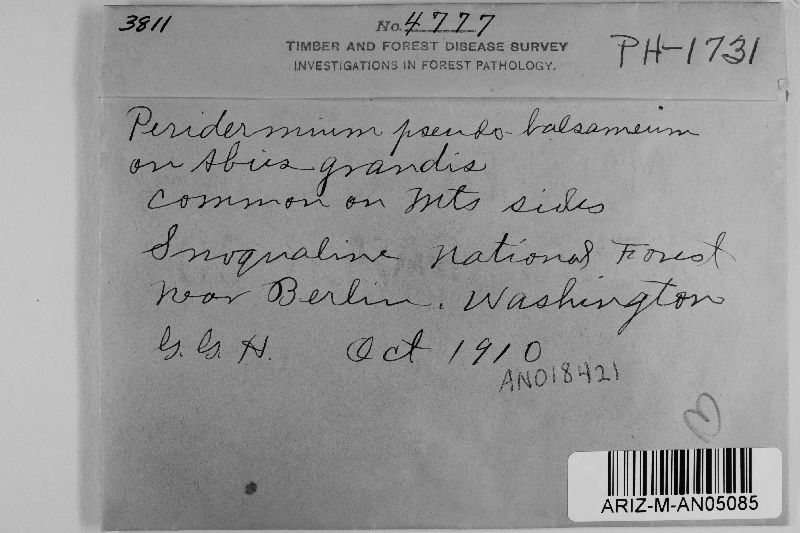 3811
No. 4777
TIMBER AND FOREST DISEASE SURVEY
INVESTIGATIONS IN FOREST PATHOLOGY.
PH-1731
Peridermium pseudo-balsameum
on Abies grandis
common on Mts sides
Snoqualine National Forest
near Berlin. Washington
G. G. H. Oct 1910
AN018421
ARIZ-M-AN05085